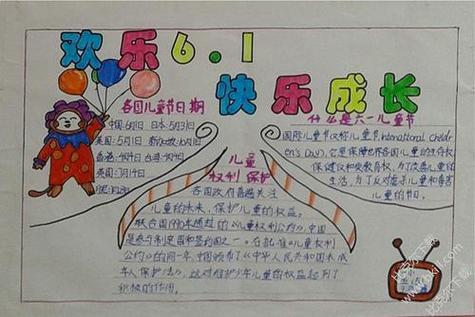 欢乐6.1
快乐成长
各国儿童节日期
中国:6月1日 日本:5月5日
英国:
香港:4月4日 台湾:4月4日
美国:
什么是六一儿童节
国际儿童节(又称儿童节,International Childr
en's Day),它是保障世界各国儿童的生存权
保健权和受教育权,为了改善儿童的
生活,为了反对虐杀儿童和毒害
儿童的节日。
儿童
权利 保护
各国政府普遍关注
儿童的未来,保护儿童的权益。
联合国1990年通过的《儿童权利公约》,中国
是参与制定国和签约国之一。在批准《儿童权利
公约》的同一年,中国颁布了《中华人民共和国未成
年人保护法》,这对维护少年儿童的权益起到了
积极的作用。